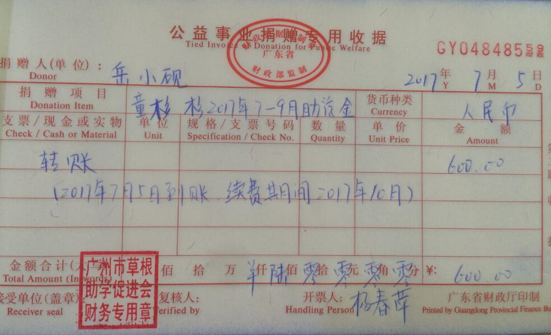 公益事业捐赠专用收据
Tied Invoice Donation for Public Welfare
财政部监制
广东省
GY048485
捐赠人(单位): 岳小砚 2017年 7月 5日
Donor Y M D
捐赠项目 童杉 杉2017年7-9月助资金 货币种类 人民币
Donation Item Currency
支票/现金或实物 单位 规格/支票号码 数量 单价 金额
Check / Cash or Material Unit Specification / Check No. Quantity Unit Price Amount
转账 600.00
(2017年7月5日到账, 续费其月间2017年10月)
金额合计(大 佰 拾 万 仟陆佰零拾零元零角零分 ¥: 600.00
Total Amount (In
广州市草根
助学促进会
财务专用章
接受单位(盖章) 复核人: 开票人: 杨春萍 广东省财政厅印制
Receiver seal Verified by Handling Person Printed by Guangdong Provincial Finance